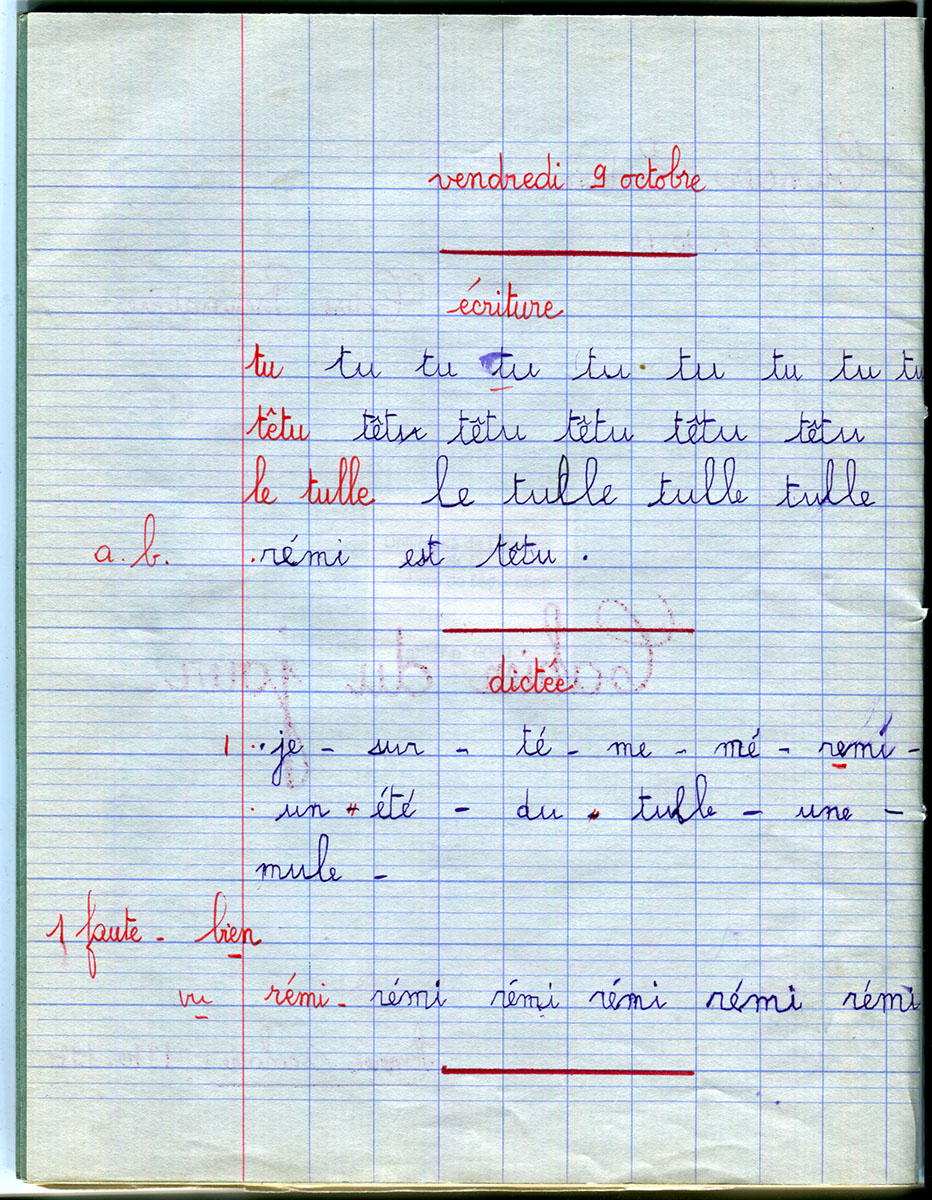 vendredi 9 octobre
écriture
tu tu tu tu tu tu tu tu tu
têtu têtu têtu têtu têtu têtu
le tulle le tulle tulle tulle
a. b. rémi est têtu .
dictée
1 je - sur - té - me - mé - remi -
un été - du tulle - une -
mule -
1 faute - bien
vu rémi - rémi rémi rémi rémi rémi